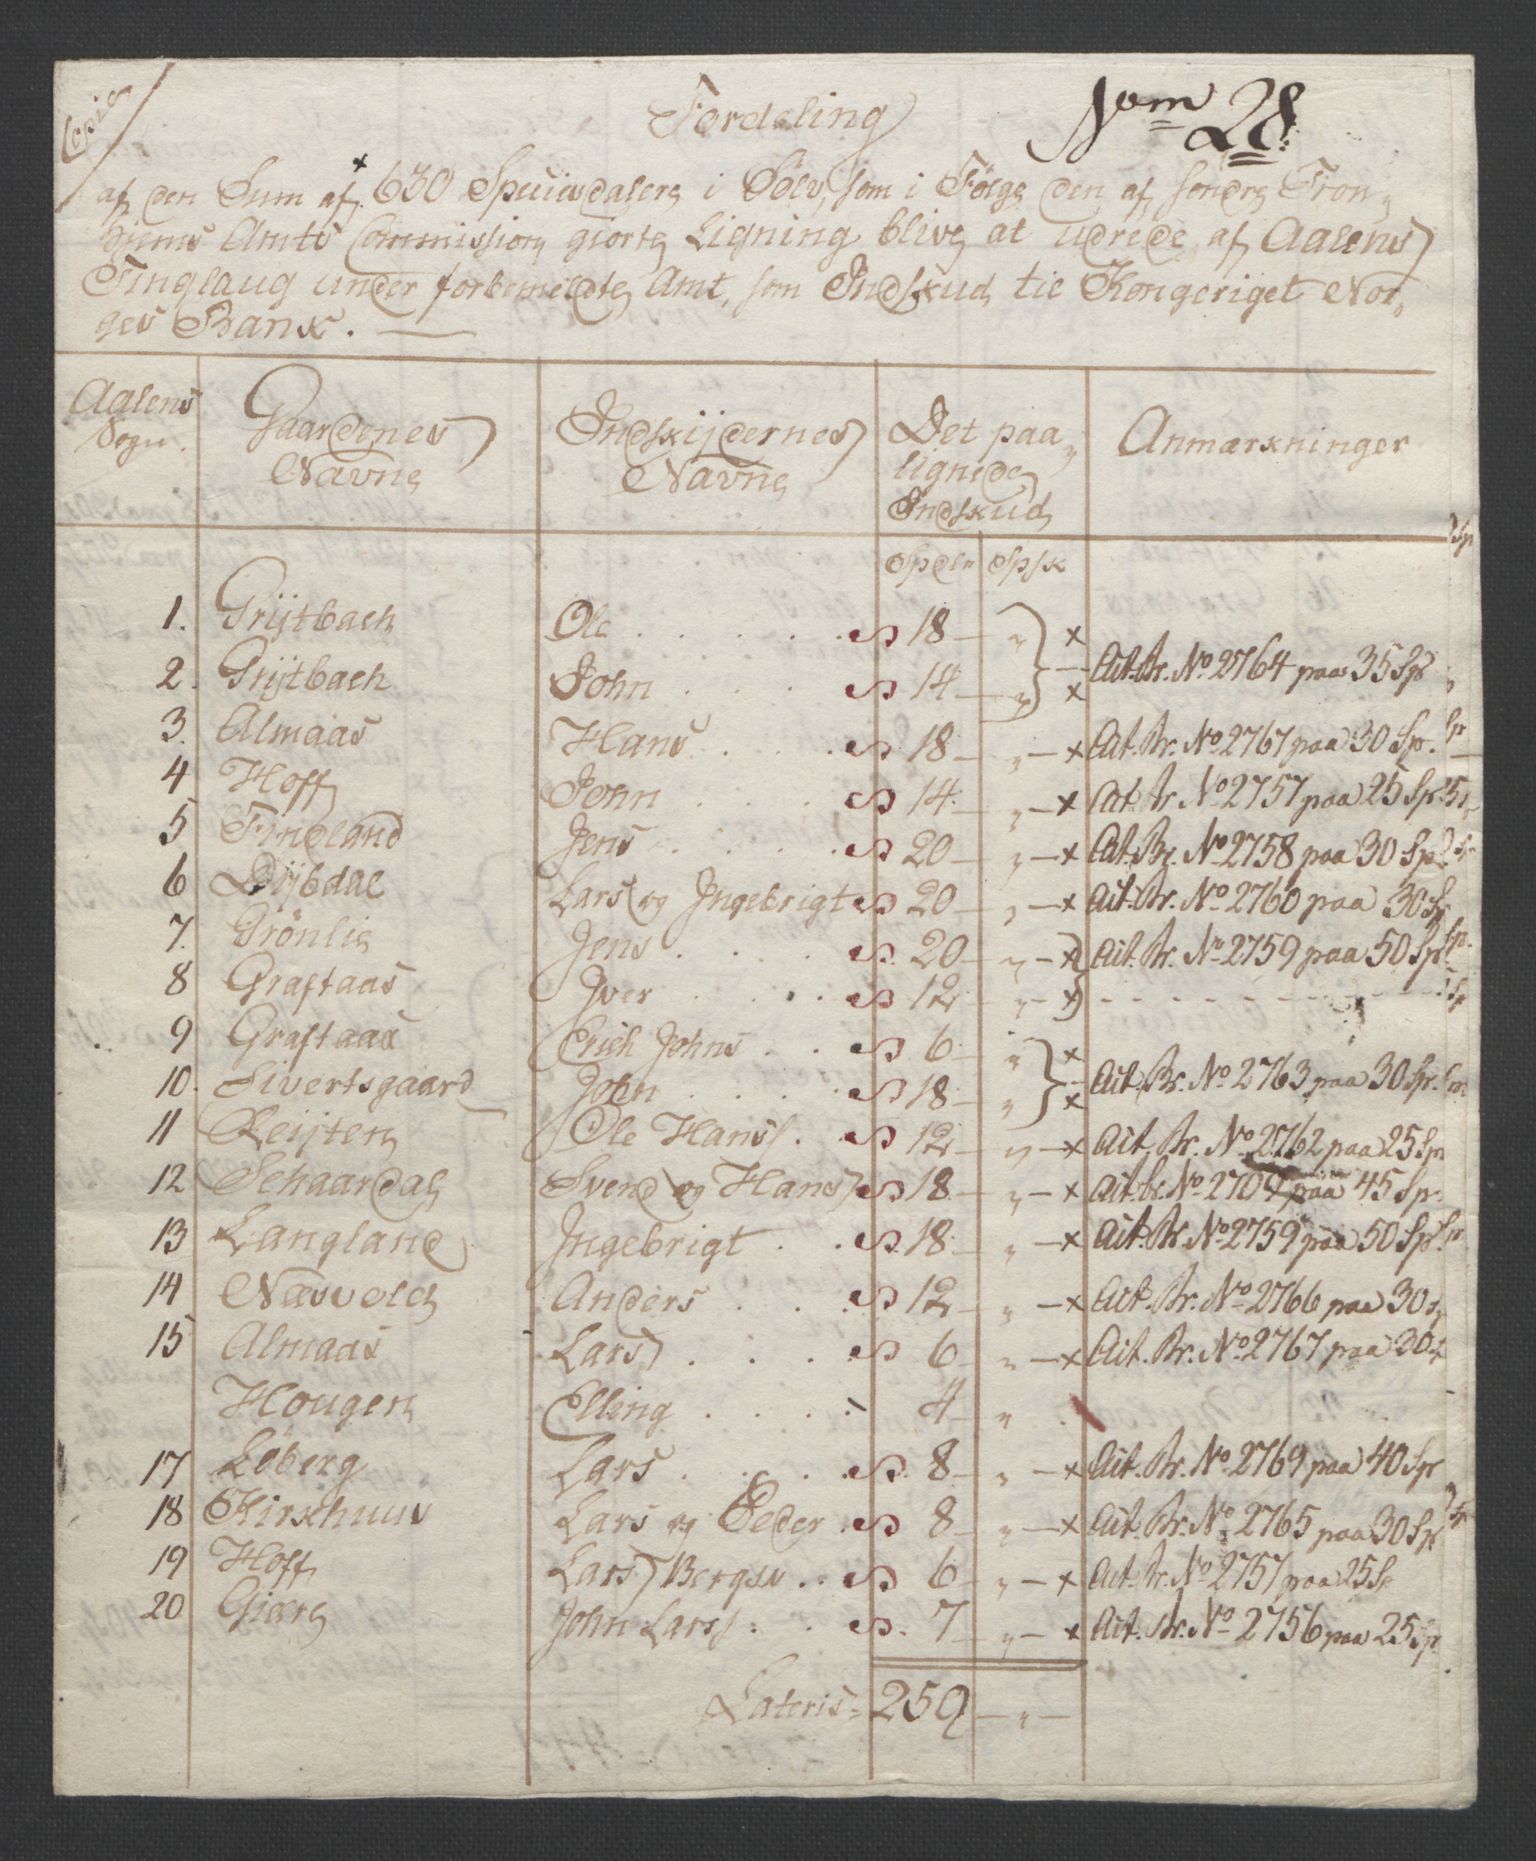 Copie
Fordeling
Nom 28:
af den Sum af 630 Speciesdalere i Sölv, som i Følge den af söndre Tron-
hjems Amts Commission giorte Ligning blive at udrede af Aalens
Tinglaug under forbemeldte Amt, som Indskud til Kongeriget Nor-
ges Bank.
Aalens Sogn. | Gaardenes Navne | Indskijdernes Navne | Det paa- lignede Indskud | Anmærkninger
Spdlr Spsk
1. Grijtbach Ole 18 " ×
2. Grijtbach John 14 " × Qit. Br. No 2764 paa 35 Sp
3. Almaas Hans 18 " × Qit. Br. No 2767 paa 30 Sp.
4 Hoff John 14 " × Qit. Br. No 2757 paa 25 Sp
5 Findland Jens 20 " × Qit. Br. No 2758 paa 30 Sp
6 Dijbdal Lars og Ingebrigt 20 " × Qit. Br. No 2760 paa 30 Sp
7. Grönlie Jens 20 " × Qit. Br. No 2759 paa 50 Sp
8 Graftaas Iver 12 " ×
9 Graftaas Erich Johns 6 " ×
10. Sivertsgaard John 18 " × Qit. Br. No 2763 paa 30 Sp.
11 Reijten Ole Hanss. 12 " × Qit. Br. No 2762 paa 25 Sp
12 Schaardal Svend og Hans 18 " × Qit. br. No 2709 paa 45 Sp.
13 Langland Ingebrigt 18 " × Qit. Br. No 2759 paa 50 Sp.
14 Næsvold Anders 12 " × Qit. Br. No 2766 paa 30 Sp
15 Almaas Lars 6 " × Qit. Br. No 2767 paa 30 Sp
Hougen Elling 4 "
17 Løberg Lars 8 " × Qit. Br. No 2769 paa 40 Sp
18 Kirschuus Lars og Peder 8 " × Qit. Br. No 2765 paa 30 Sp
19 Hoff Lars Bergsv 6 " × Qit. Br. No 2757 paa 25 Sp
20 Giære John Larss: 7 " × Qit. Br. No 2756 paa 25 Sp
Lateris 259 "